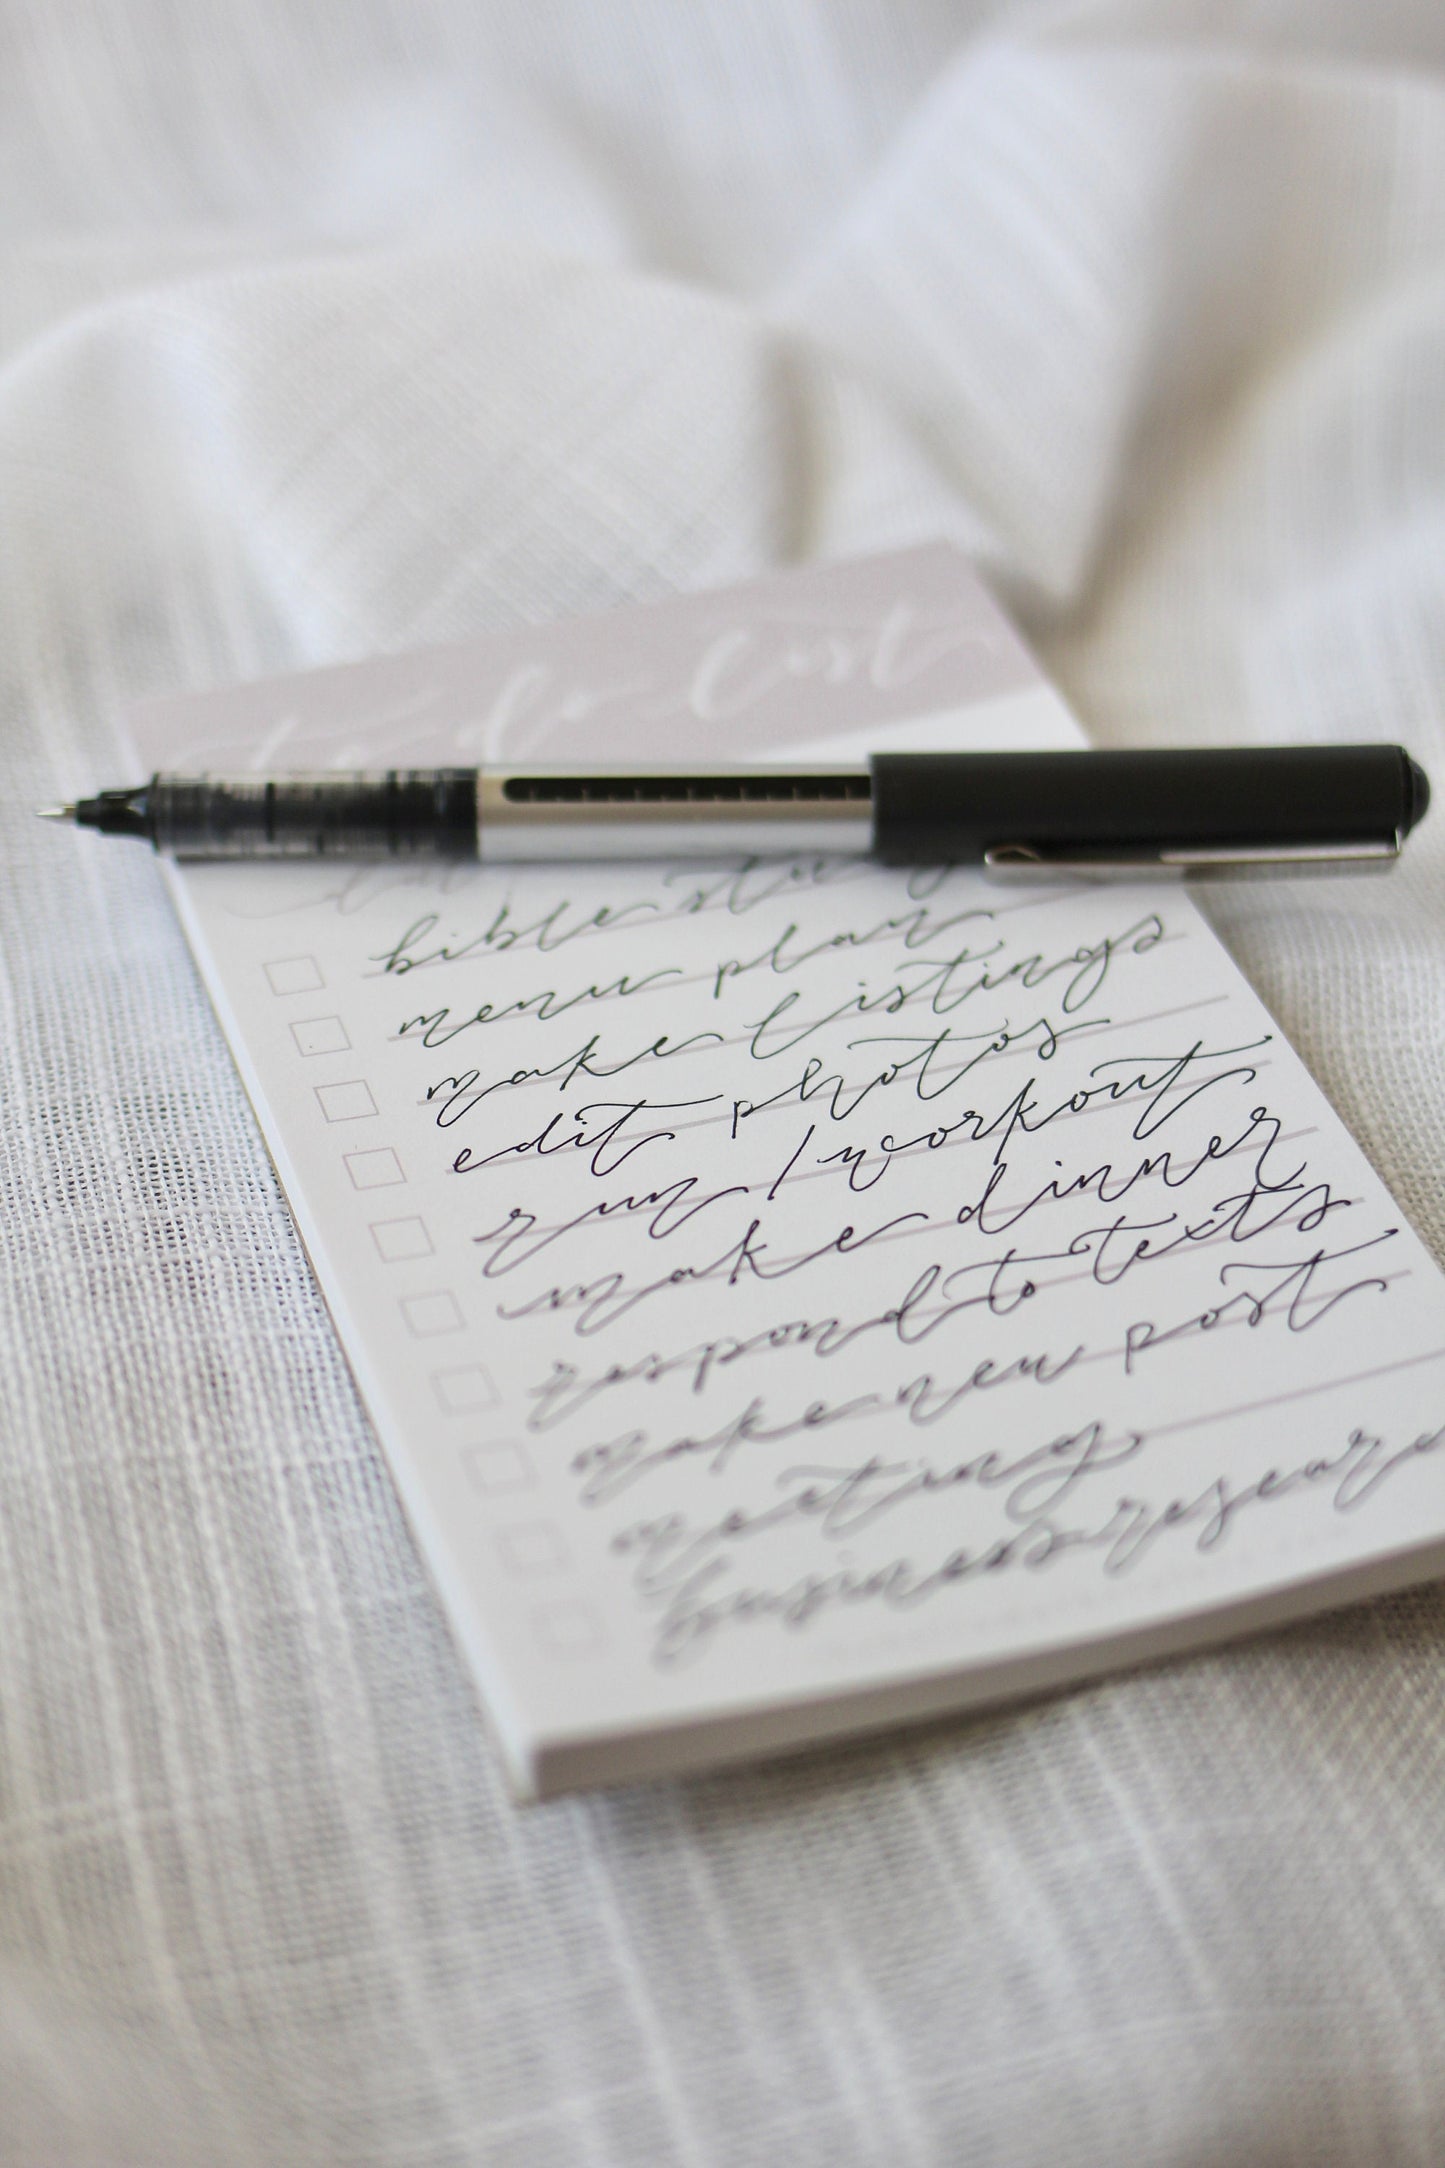 to do list
bible study
menu plan
make listings
edit photos
run / workout
make dinner
respond to texts
make new post
meeting
business research